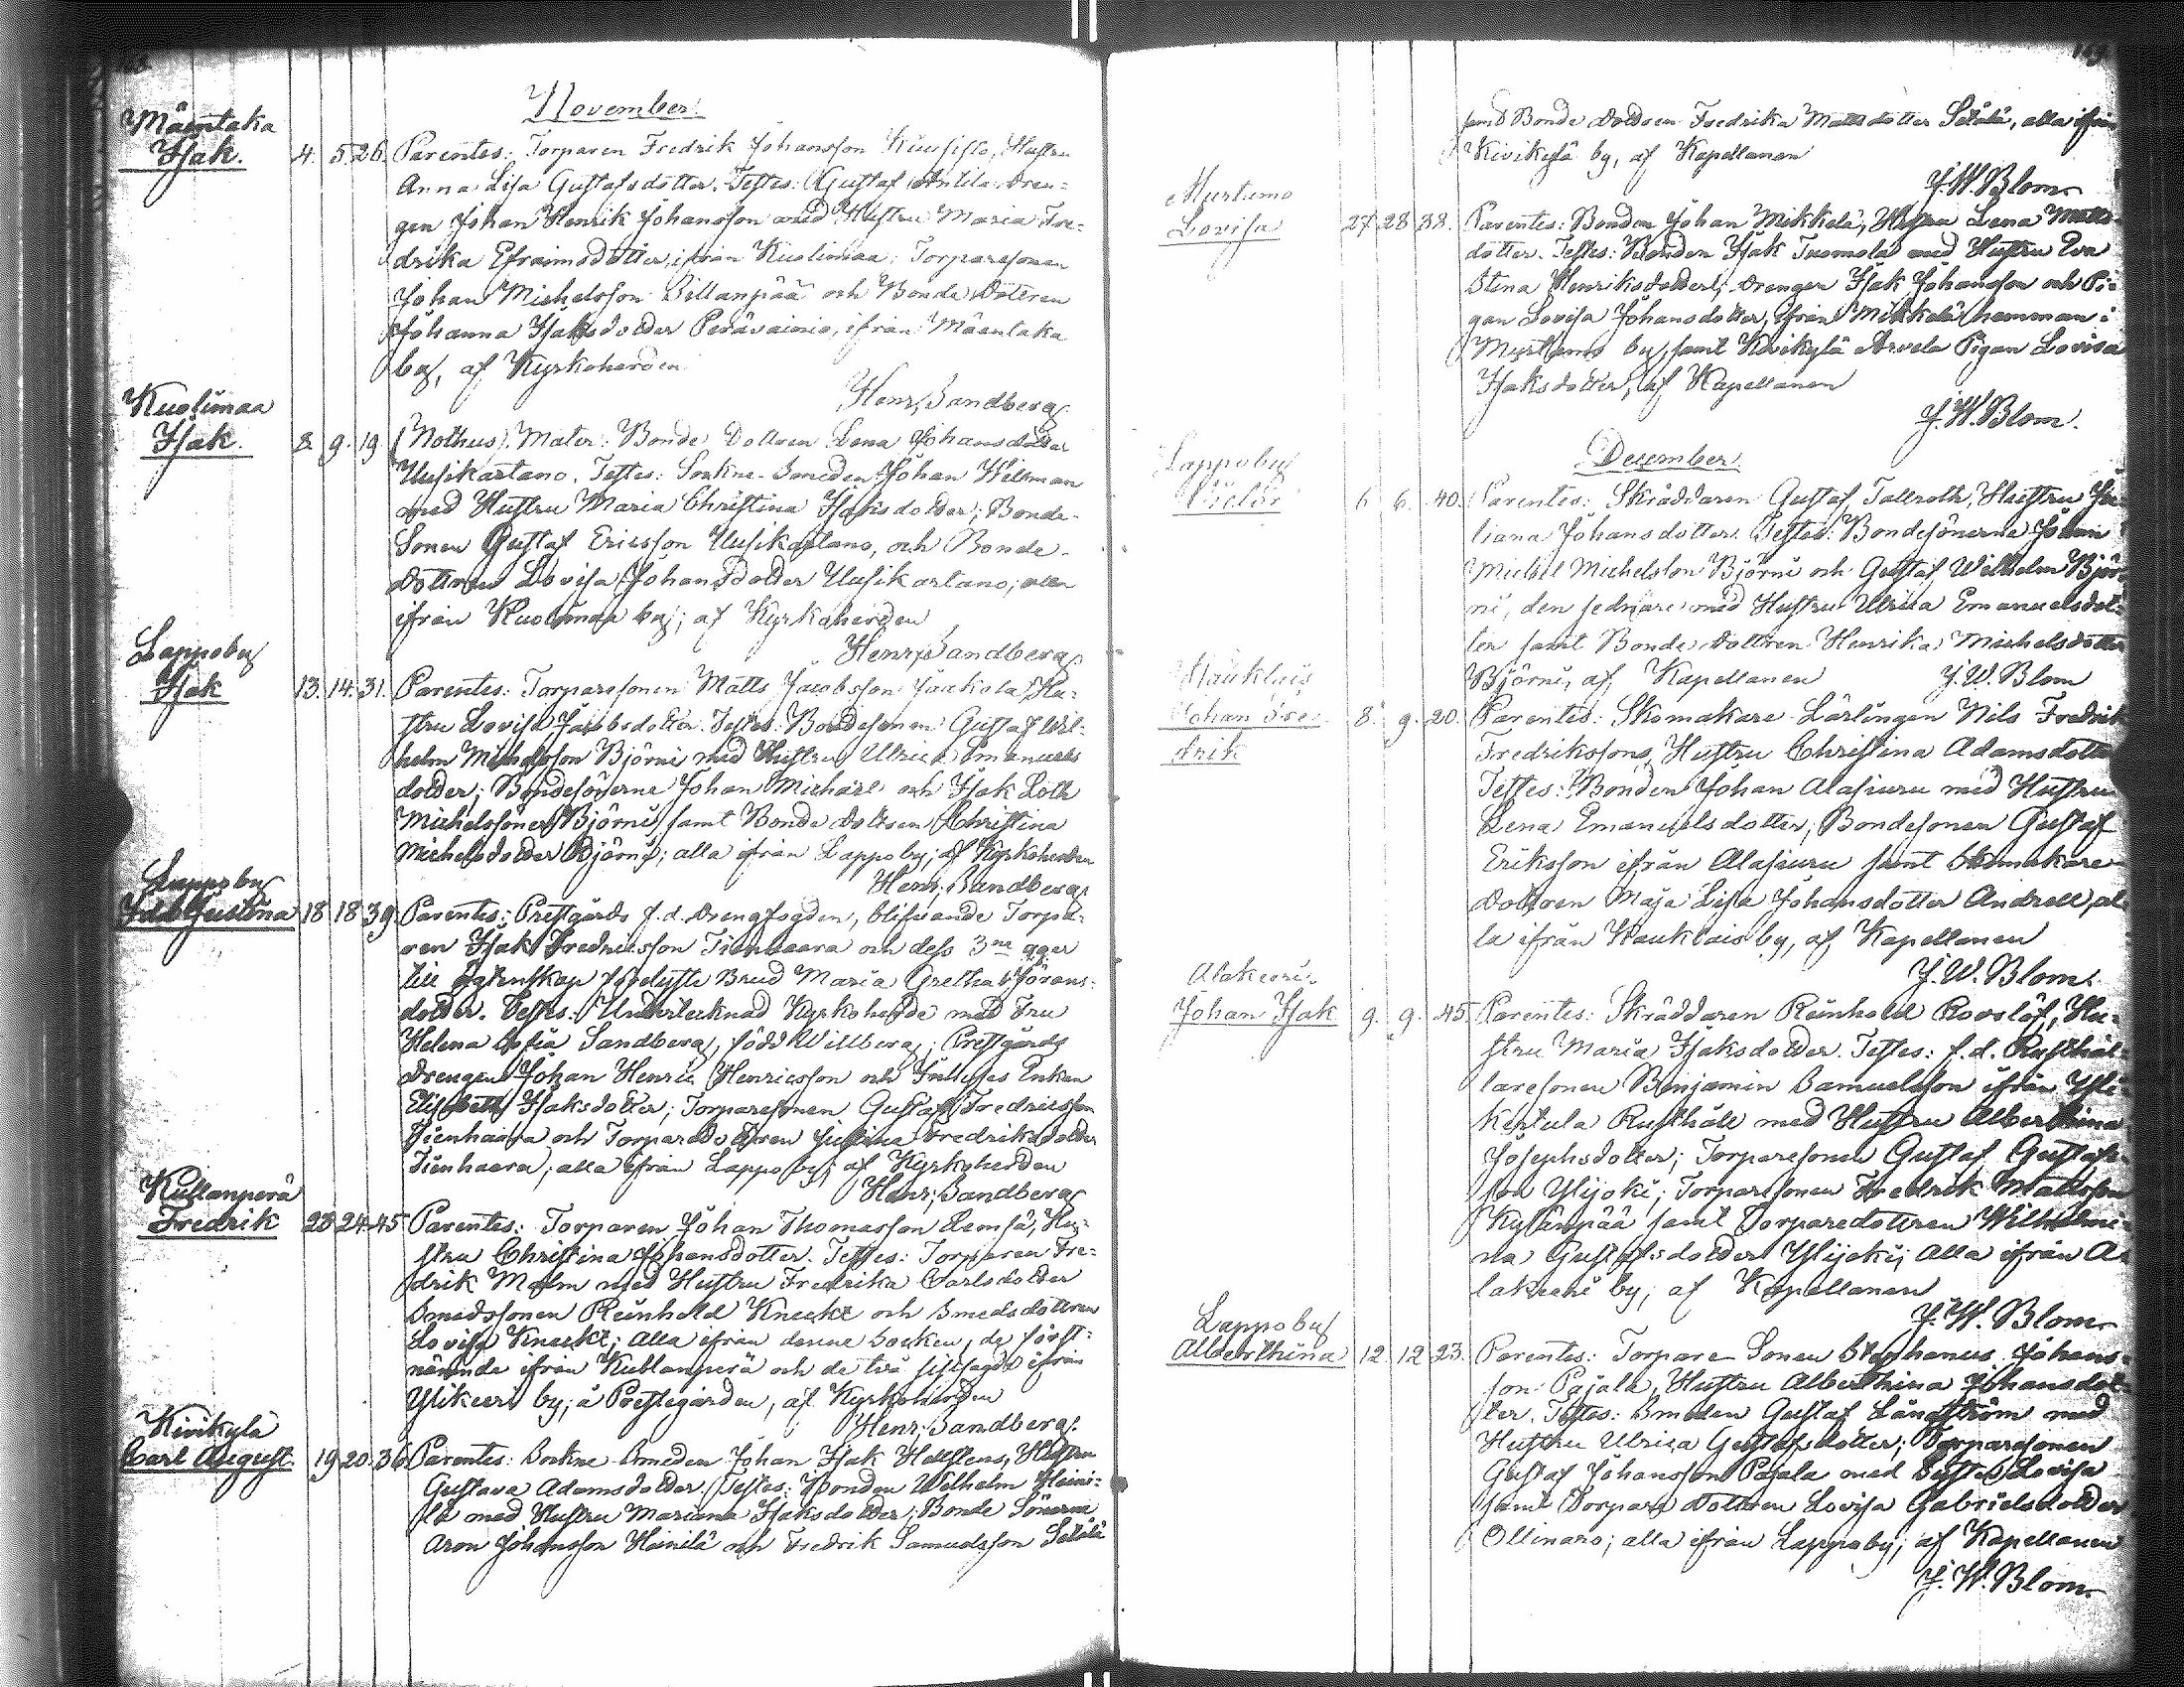 November.
Mäentaka
Isak. 4. 5. 26. Parentes: Torparen Fredrik Johansson Kuusisto, Hustru
Anna Lisa Gustafsdotter. Testes: Gustaf Anttila Dren-
gen Johan Henrik Johansson med Hustru Maria Fre-
drika Efraimsdotter, ifrån Kuolimaa; Torparesonen
Johan Michelsson Sillanpää och Bonde Dottren
Johanna Isaksdotter Perävainio, ifrån Mäentaka
by, af Kyrkoherden
Henr. Sandberg
Kuolimaa
Isak. 8. 9. 19. (Nothus). Mater: Bonde Dottren Lena Johansdotter
Uusikartano. Testes: Sockne-Smeden Johan Hellman
med Hustru Maria Christina Isaksdotter; Bonde-
Sonen Gustaf Ericsson Uusikartano, och Bonde-
dottren Lovisa Johansdotter Uusikartano; alla
ifrån Kuolimaa by; af Kyrkoherden
Henr. Sandberg
Lappoby
Isak 13. 14. 31. Parentes: Torparesonen Matts Jacobsson Jaakola, Hu-
stru Lovisa Jacobsdotter. Testes: Bondesonen Gustaf Wil-
helm Michelsson Björni med Hustru Ulrica Emanuels
dotter; Bondesönerne Johan Michael och Isak Loth
Michelssöner Björni, samt Bonde dottren Christina
Michelsdotter Björni; alla ifrån Lappo by; af Kyrkoherden
Henr. Sandberg
Lappoby
Ida Justina 18 18 39. Parentes: Prestgårds f.d. Drengfogden, blifvande Torpa-
ren Isak Fredricsson Tienhaara och dess 3ne gger
till Egtenskap lyste Brud Maria Gretha Jörans-
dotter. Testes: Undertecknad Kyrkoherde med Fru
Helena Sofia Sandberg, född Willberg; Prestgårds
drengen Johan Henric Henricsson och Inhyses Enkan
Elisabeth Isaksdotter; Torparesonen Gustaf Fredricsson
Tienhaara och Torparedottren Justina Fredriksdotter
Tienhaara; alla ifrån Lappo by; af Kyrkoherden
Henr. Sandberg
Kullanperä
Fredrik 23 24. 45. Parentes: Torparen Johan Thomasson Remsä, Hu-
stru Christina Johansdotter. Testes: Torparen Fre-
drik Malm med Hustru Fredrika Carlsdotter
Smedssonen Reinhold Kneckt och Smedsdottren
Lovisa Kneckt; alla ifrån denna Socken, de först-
nämnde ifrån Kullanperä och de två sistsagde ifrån
Ylikeeri by; å Prestegården, af Kyrkoherden
Henr. Sandberg.
Kivikylä
Carl August. 19 20. 36. Parentes: Sockne-Smeden Johan Isak Hellstens, Hustru
Gustava Adamsdotter. Testes: Bonden Wilhelm Heini-
lä med Hustru Mariana Isaksdotter; Bonde Sönerne
Aron Johansson Heinilä och Fredrik Samuelsson Sälilä
samt Bonde dottren Fredrika Mattsdotter Sälilä, alla ifrån
Kivikylä by, af Kapellanen
J. W. Blom.
Murtamo
Lovisa 27 28 38. Parentes: Bonden Johan Mikkelä, Hustru Lena Matts-
dotter. Testes: Bonden Isak Tuomola med Hustru Eva
Stina Henriksdotter, Drengen Isak Johansson och Pi-
gan Lovisa Johansdotter, ifrån Mikkelä hemman i
Myrtamo by, samt Kivikylä Arvela Pigan Lovisa
Isaksdotter, af Kapellanen
J. W. Blom.
December.
Lappoby
6. 6. 40. Parentes: Skräddaren Gustaf Tallroth, Hustru Ju-
liana Johansdotter. Testes: Bondesönerne Johan
Michel Michelsson Björni och Gustaf Wilhelm Björ-
ni, den sednare med Hustru Ulrica Emanuelsdot-
ter samt Bonde dottren Henrika Michelsdotter
Björni, af Kapellanen J. W. Blom
Hauklais
Johan Fre- 8. 9. 20. Parentes: Skomakare Lärlingen Nils Fredrik
drik Fredrikssons, Hustru Christina Adamsdotter
Testes: Bonden Johan Alasiuru med Hustru
Lena Emanuelsdotter; Bondesonen Gustaf
Eriksson ifrån Alasiuru samt Skomakare
dottren Maja Lisa Johansdotter Andrell, al-
la ifrån Hauklais by, af Kapellanen
J. W. Blom.
Alakeeri
Johan Isak 9. 9. 45. Parentes: Skräddaren Reinhold Rooslöf, Hu-
stru Maria Isaksdotter. Testes: f.d. Rusthål-
laresonen Benjamin Samuelsson ifrån Yli-
kertula Rusthåll med Hustru Alberthina
Josephsdotter; Torparesonen Gustaf Gustafs-
son Ylijoki; Torparesonen Fredrik Mattsson
Kylänpää samt Torparedottren Wilhelmi-
na Gustafsdotter Ylijoki; alla ifrån A-
lakeeri by, af Kapellanen
J. W. Blom.
Lappoby
Alberthina 12 12 23. Parentes: Torpare Sonen Stephanus Johans-
son Pajala, Hustru Alberthina Johansdot-
ter. Testes: Smeden Gustaf Långström med
Hustru Ulrica Gustafsdotter; Torparesonen
Gustaf Johansson Pajala med Syster Lovisa
samt Torpare dottren Lovisa Gabrielsdotter
Ollinaro; alla ifrån Lappoby; af Kapellanen
J. W. Blom.